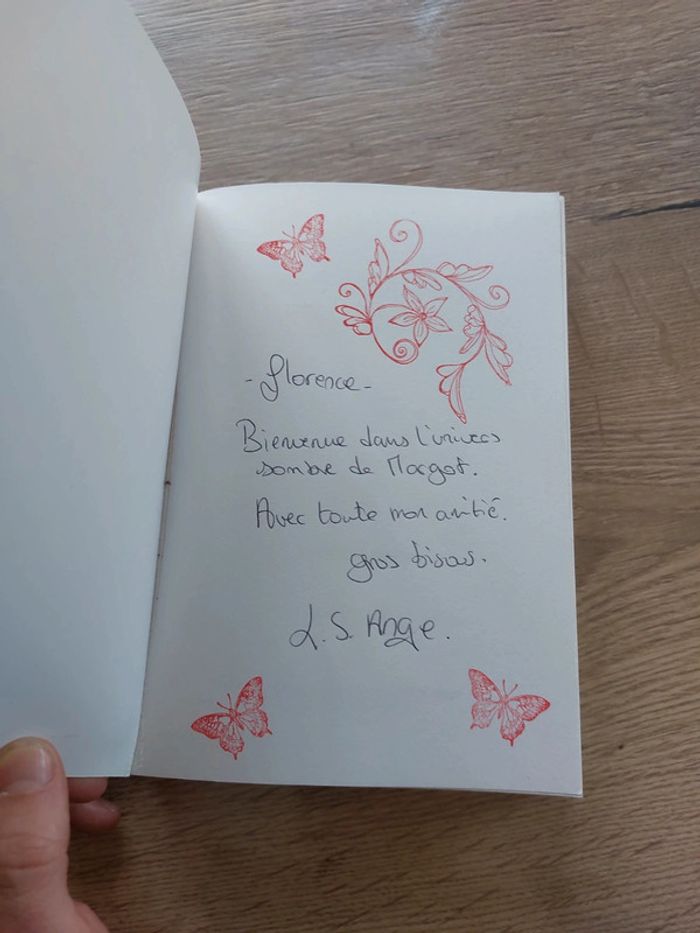 - Florence -
Bienvenue dans l'univers
sombre de Margot.
Avec toute mon amitié.
gros bisous.
L. S. Ange.